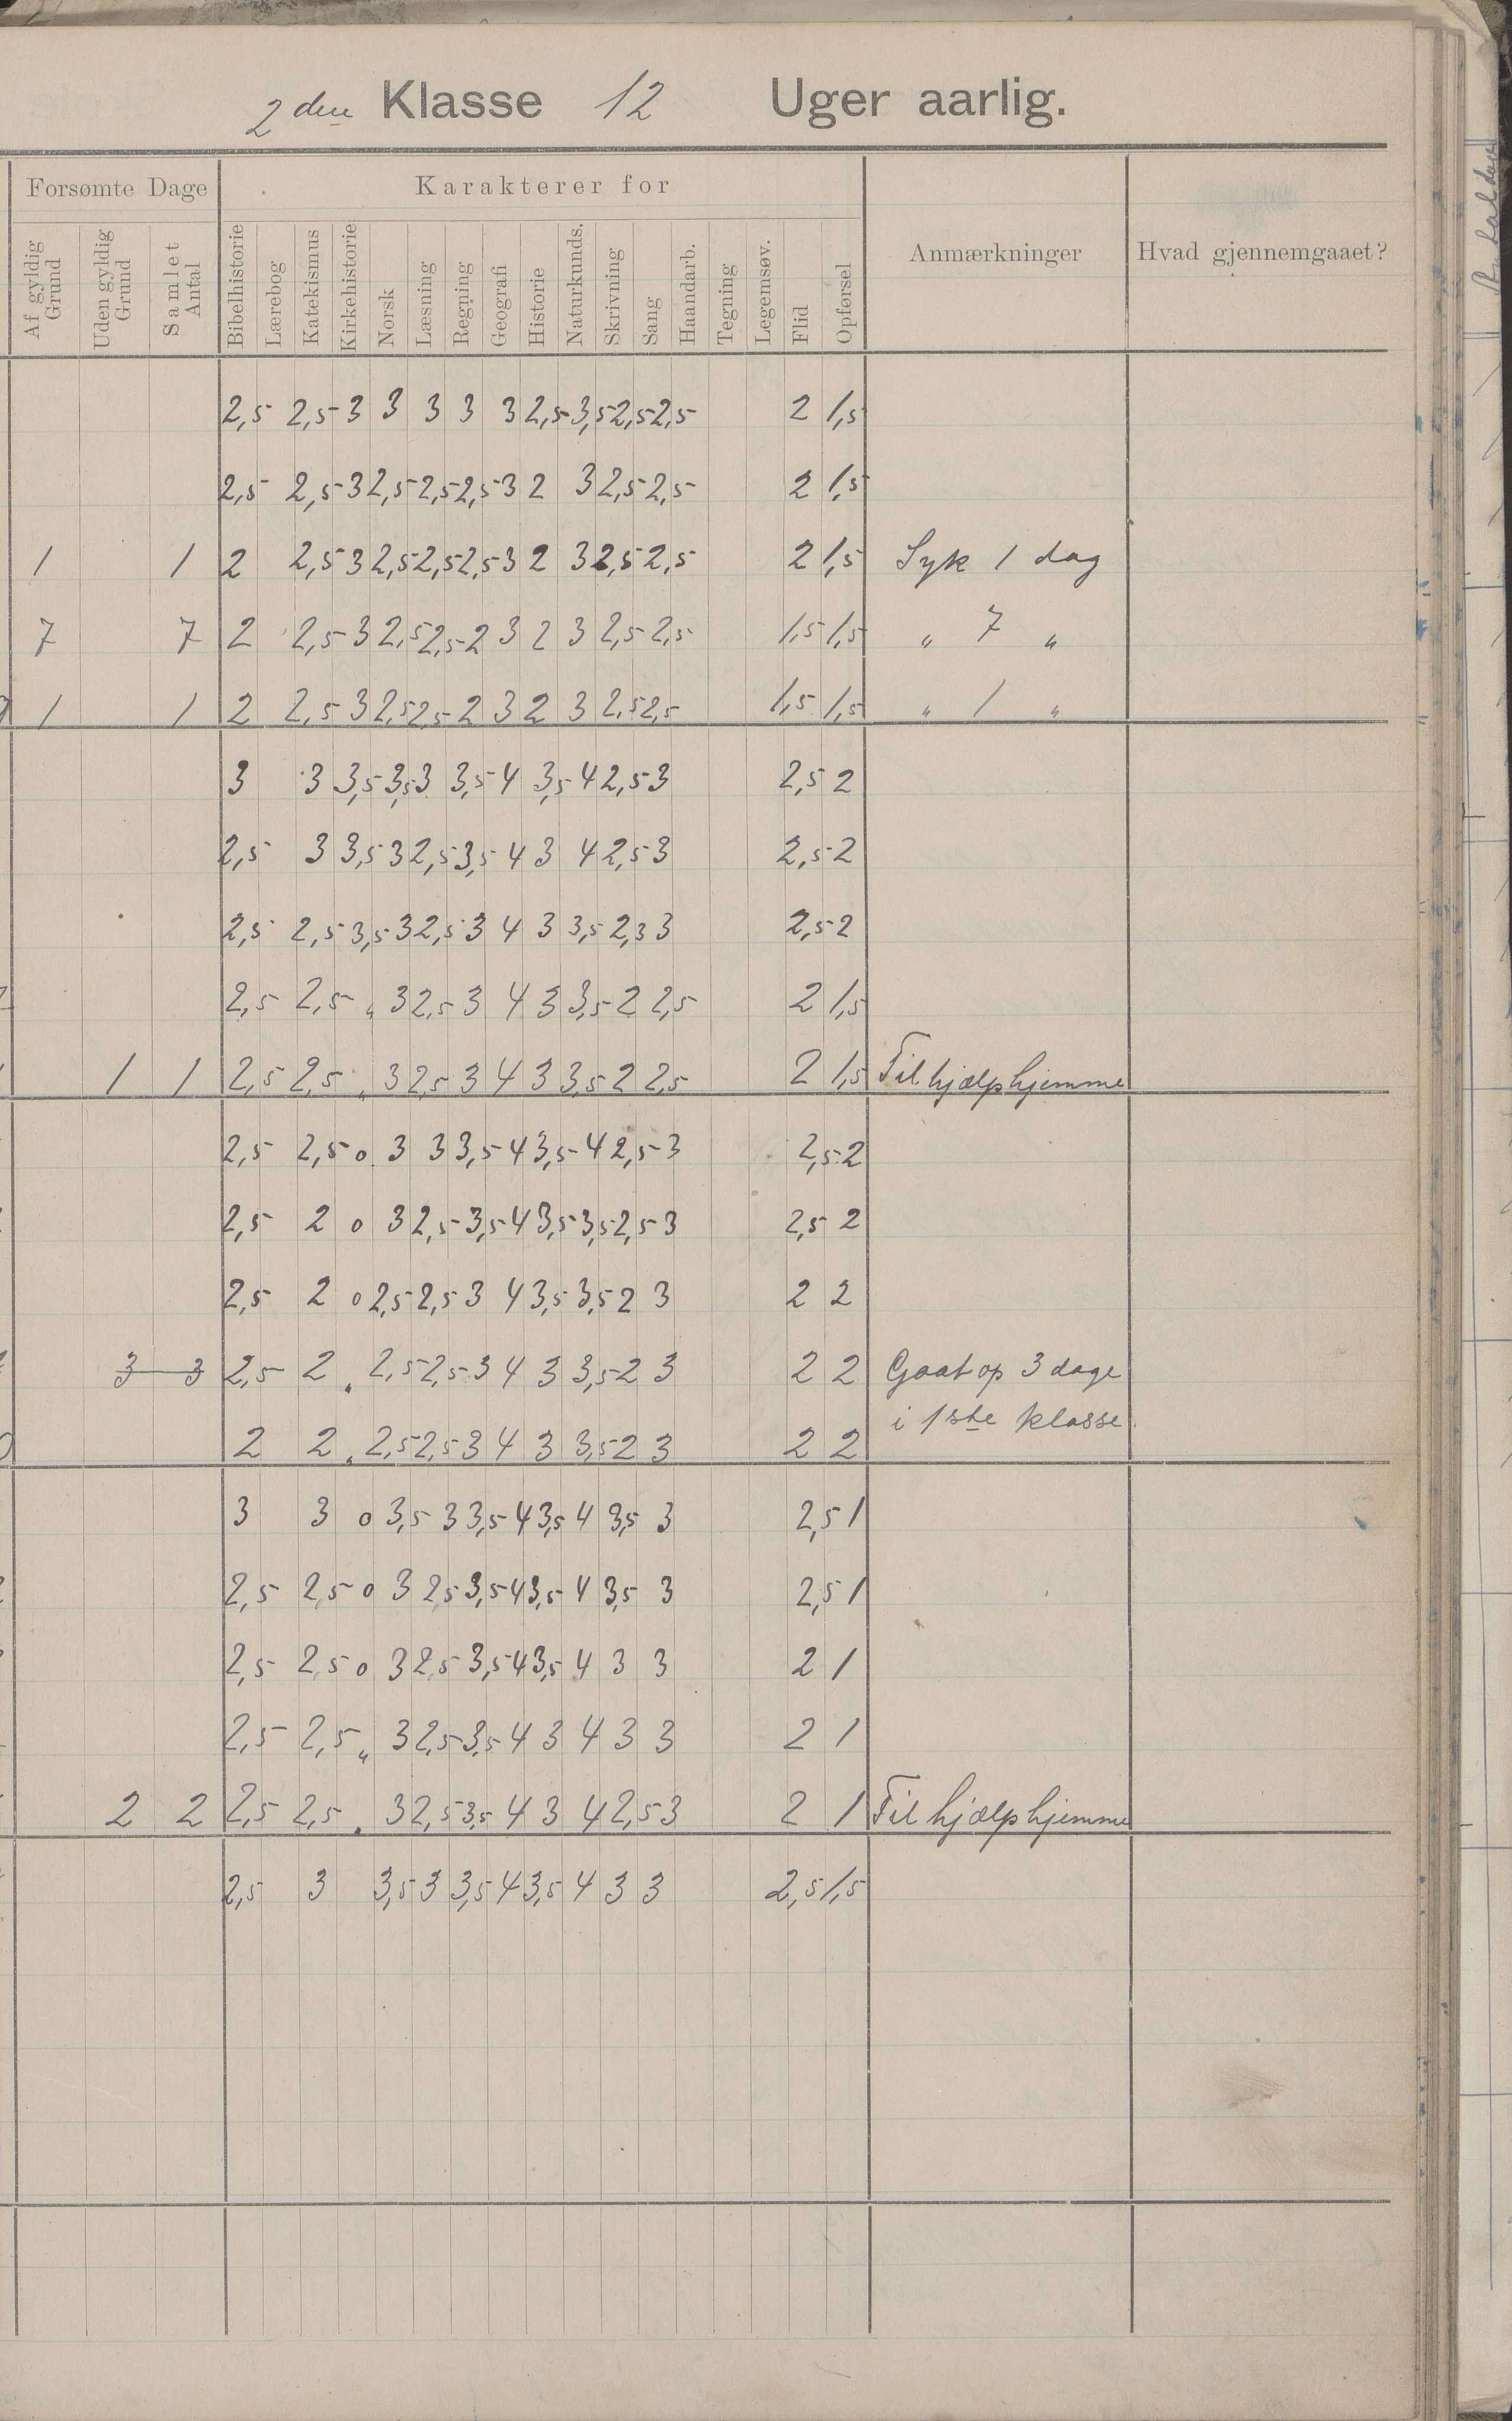 2den Klasse 12 Uger aarlig.
Forsømte Dage Karakterer for Anmærkninger Hvad gjennemgaaet?
Af gyldig Grund Uden gyldig Grund Samlet Antal Bibelhistorie Lærebog Katekismus Kirkehistorie Norsk Læsning Regning Geografi Historie Naturkunds. Skrivning Sang Haandarb. Tegning Legemsøv. Flid Opførsel
2,5 2,5 3 3 3 3 3 2,5 3,5 2,5 2,5 2 1,5
2,5 2,5 3 2,5 2,5 2,5 3 2 3 2,5 2,5 2 1,5
1 1 2 2,5 3 2,5 2,5 2,5 3 2 3 2,5 2,5 2 1,5 Syk 1 dag
7 7 2 2,5 3 2,5 2,5 2 3 2 3 2,5 2,5 1,5 1,5 " 7 "
1 1 2 2,5 3 2,5 2,5 2 3 2 3 2,5 2,5 1,5 1,5 " 1 "
3 3 3,5 3,5 3 3,5 4 3,5 4 2,5 3 2,5 2
2,5 3 3,5 3 2,5 3,5 4 3 4 2,5 3 2,5 2
2,5 2,5 3,5 3 2,5 3 4 3 3,5 2,3 3 2,5 2
2,5 2,5 " 3 2,5 3 4 3 3,5 2 2,5 2 1,5
1 1 2,5 2,5 " 3 2,5 3 4 3 3,5 2 2,5 2 1,5 Til hjælp hjemme
2,5 2,5 0 3 3 3,5 4 3,5 4 2,5 3 2,5 2
2,5 2 0 3 2,5 3,5 4 3,5 3,5 2,5 3 2,5 2
2,5 2 0 2,5 2,5 3 4 3,5 3,5 2 3 2 2
3 3 2,5 2 " 2,5 2,5 3 4 3 3,5 2 3 2 2 Gaat op 3 dage
i 1ste klasse
2 2 " 2,5 2,5 3 4 3 3,5 2 3 2 2
3 3 0 3,5 3 3,5 4 3,5 4 3,5 3 2,5 1
2,5 2,5 0 3 2,5 3,5 4 3,5 4 3,5 3 2,5 1
2,5 2,5 0 3 2,5 3,5 4 3,5 4 3 3 2 1
2,5 2,5 " 3 2,5 3,5 4 3 4 3 3 2 1
2 2 2,5 2,5 " 3 2,5 3,5 4 3 4 2,5 3 2 1 Til hjælp hjemme
2,5 3 3,5 3 3,5 4 3,5 4 3 3 2,5 1,5